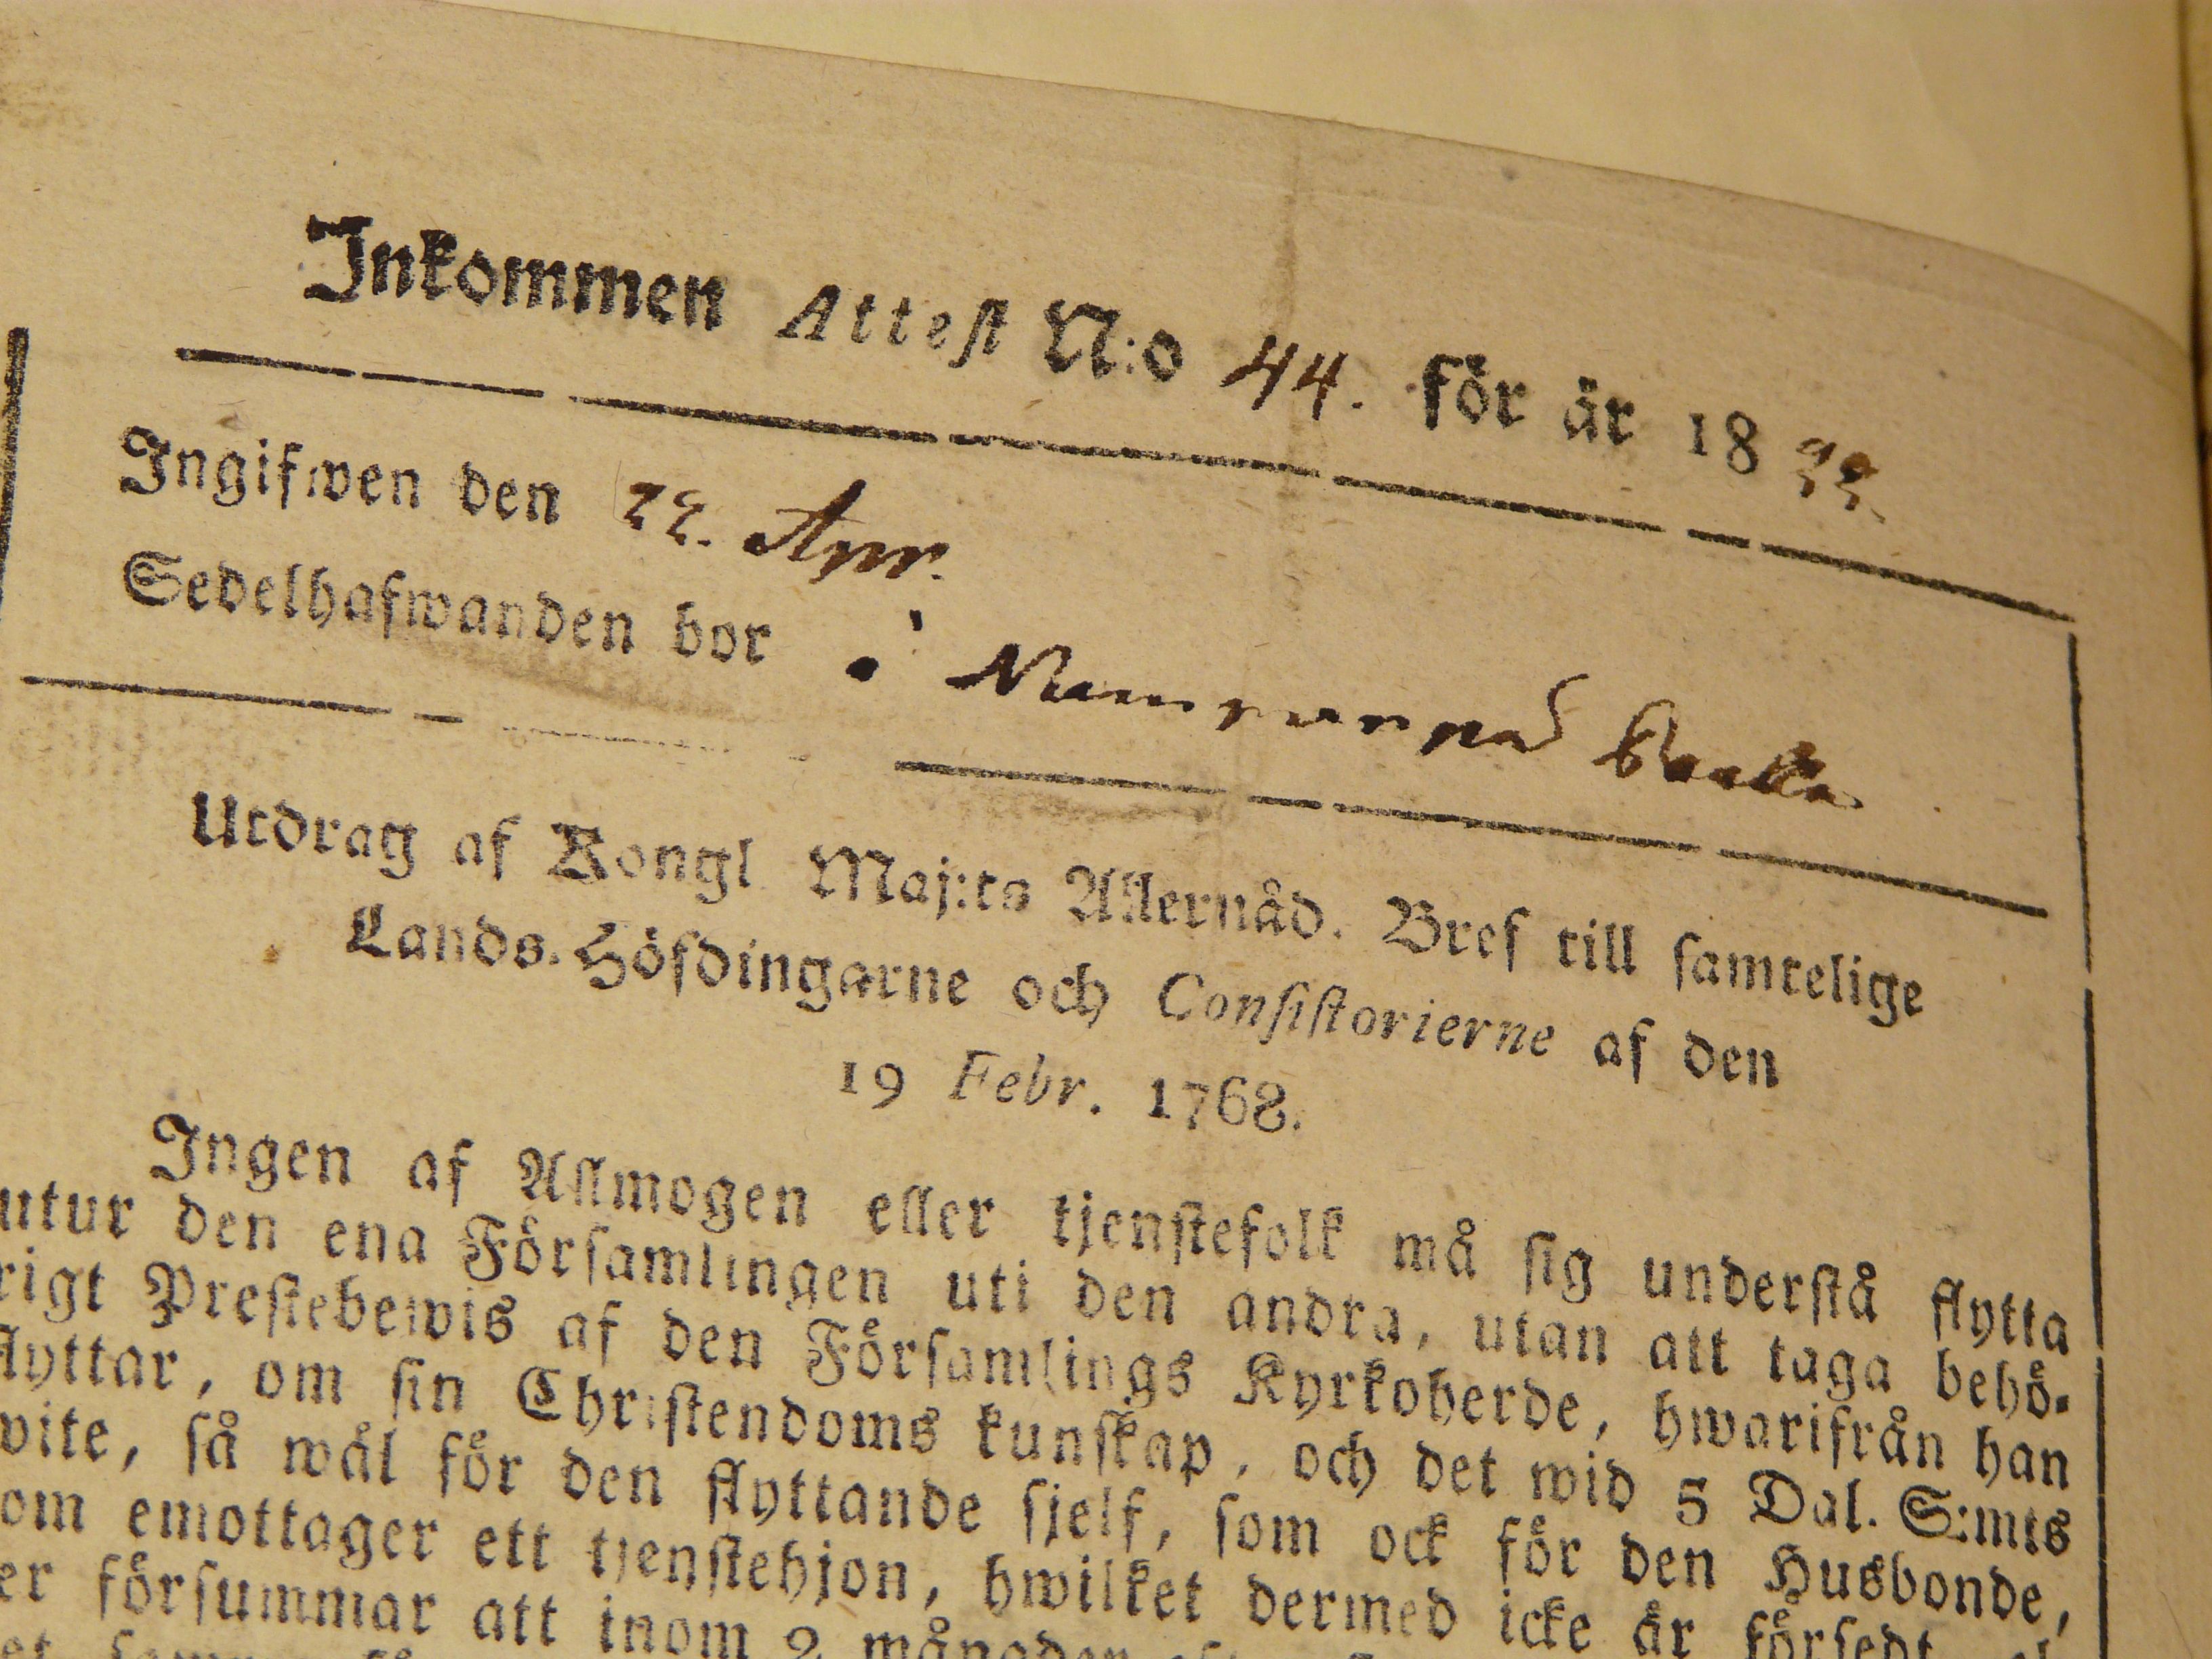 Inkommen Attest N:o 44. för år 1833.
Ingifwen den 22. Apr.
Sedelhafwanden bor i
Utdrag af Kongl Maj:ts Allernåd. Bref till samtelige
Lands-Höfdingarne och Consistorierne af den
19 Febr. 1768.
Ingen af Allmogen eller tjenstefolk må sig understå flytta
utur den ena Församlingen uti den andra, utan att taga behö-
rigt Prestebewis af den Församlings Kyrkoherde, hwarifrån han
flyttar, om sin Christendoms kunskap, och det wid 5 Dal. S:mts
wite, så wäl för den flyttande sjelf, som ock för den Husbonde,
om emottager ett tjenstehjon, hwilket dermed icke är försedt
er försummar att inom 2 månader